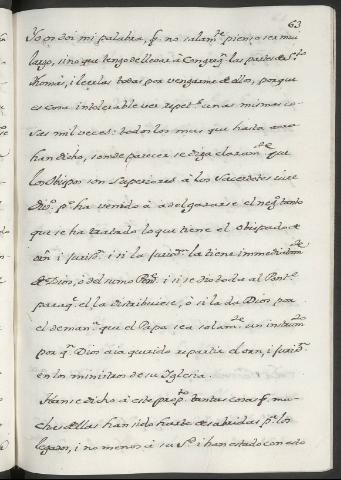 63
Yo os doi mi palabra, q̃. no solamte. pienso ser mui
largo, sino que tengo de llevar à Congregn. las partes de Sto.
Thomàs, i leerlas todas por vengarme de ellos, porque
es cosa intolerable ver repetir unas mismas co-
sas mil veces: todos los mas que hasta aora
han dicho, son de parecer se diga claramte. que
los Obispos son Superiores à los Sacerdotes iure
Divo. pº. ha venido à adelgazarse el negº. tanto
que se ha tratado lo que tiene el Obispado de
orn. i jurisn. i si la jurisn. la tiene immediatamte.
de Dios, ò del sumo Ponte. i si se dio toda al Ponte.
paraq̃. el la distribuiese, ò si la da Dios por
el deman. que el Papa sea solamte. un instrumto.
por q̃. Dios aia querido repartir el orn. i jurisn.
en los ministros de su Iglesia.
Hanse dicho à este propto. tantas cosas q̃. mu-
chas dellas han sido harto desabridas pª. los
legados, i no menos à su Sd. i han estado con esto